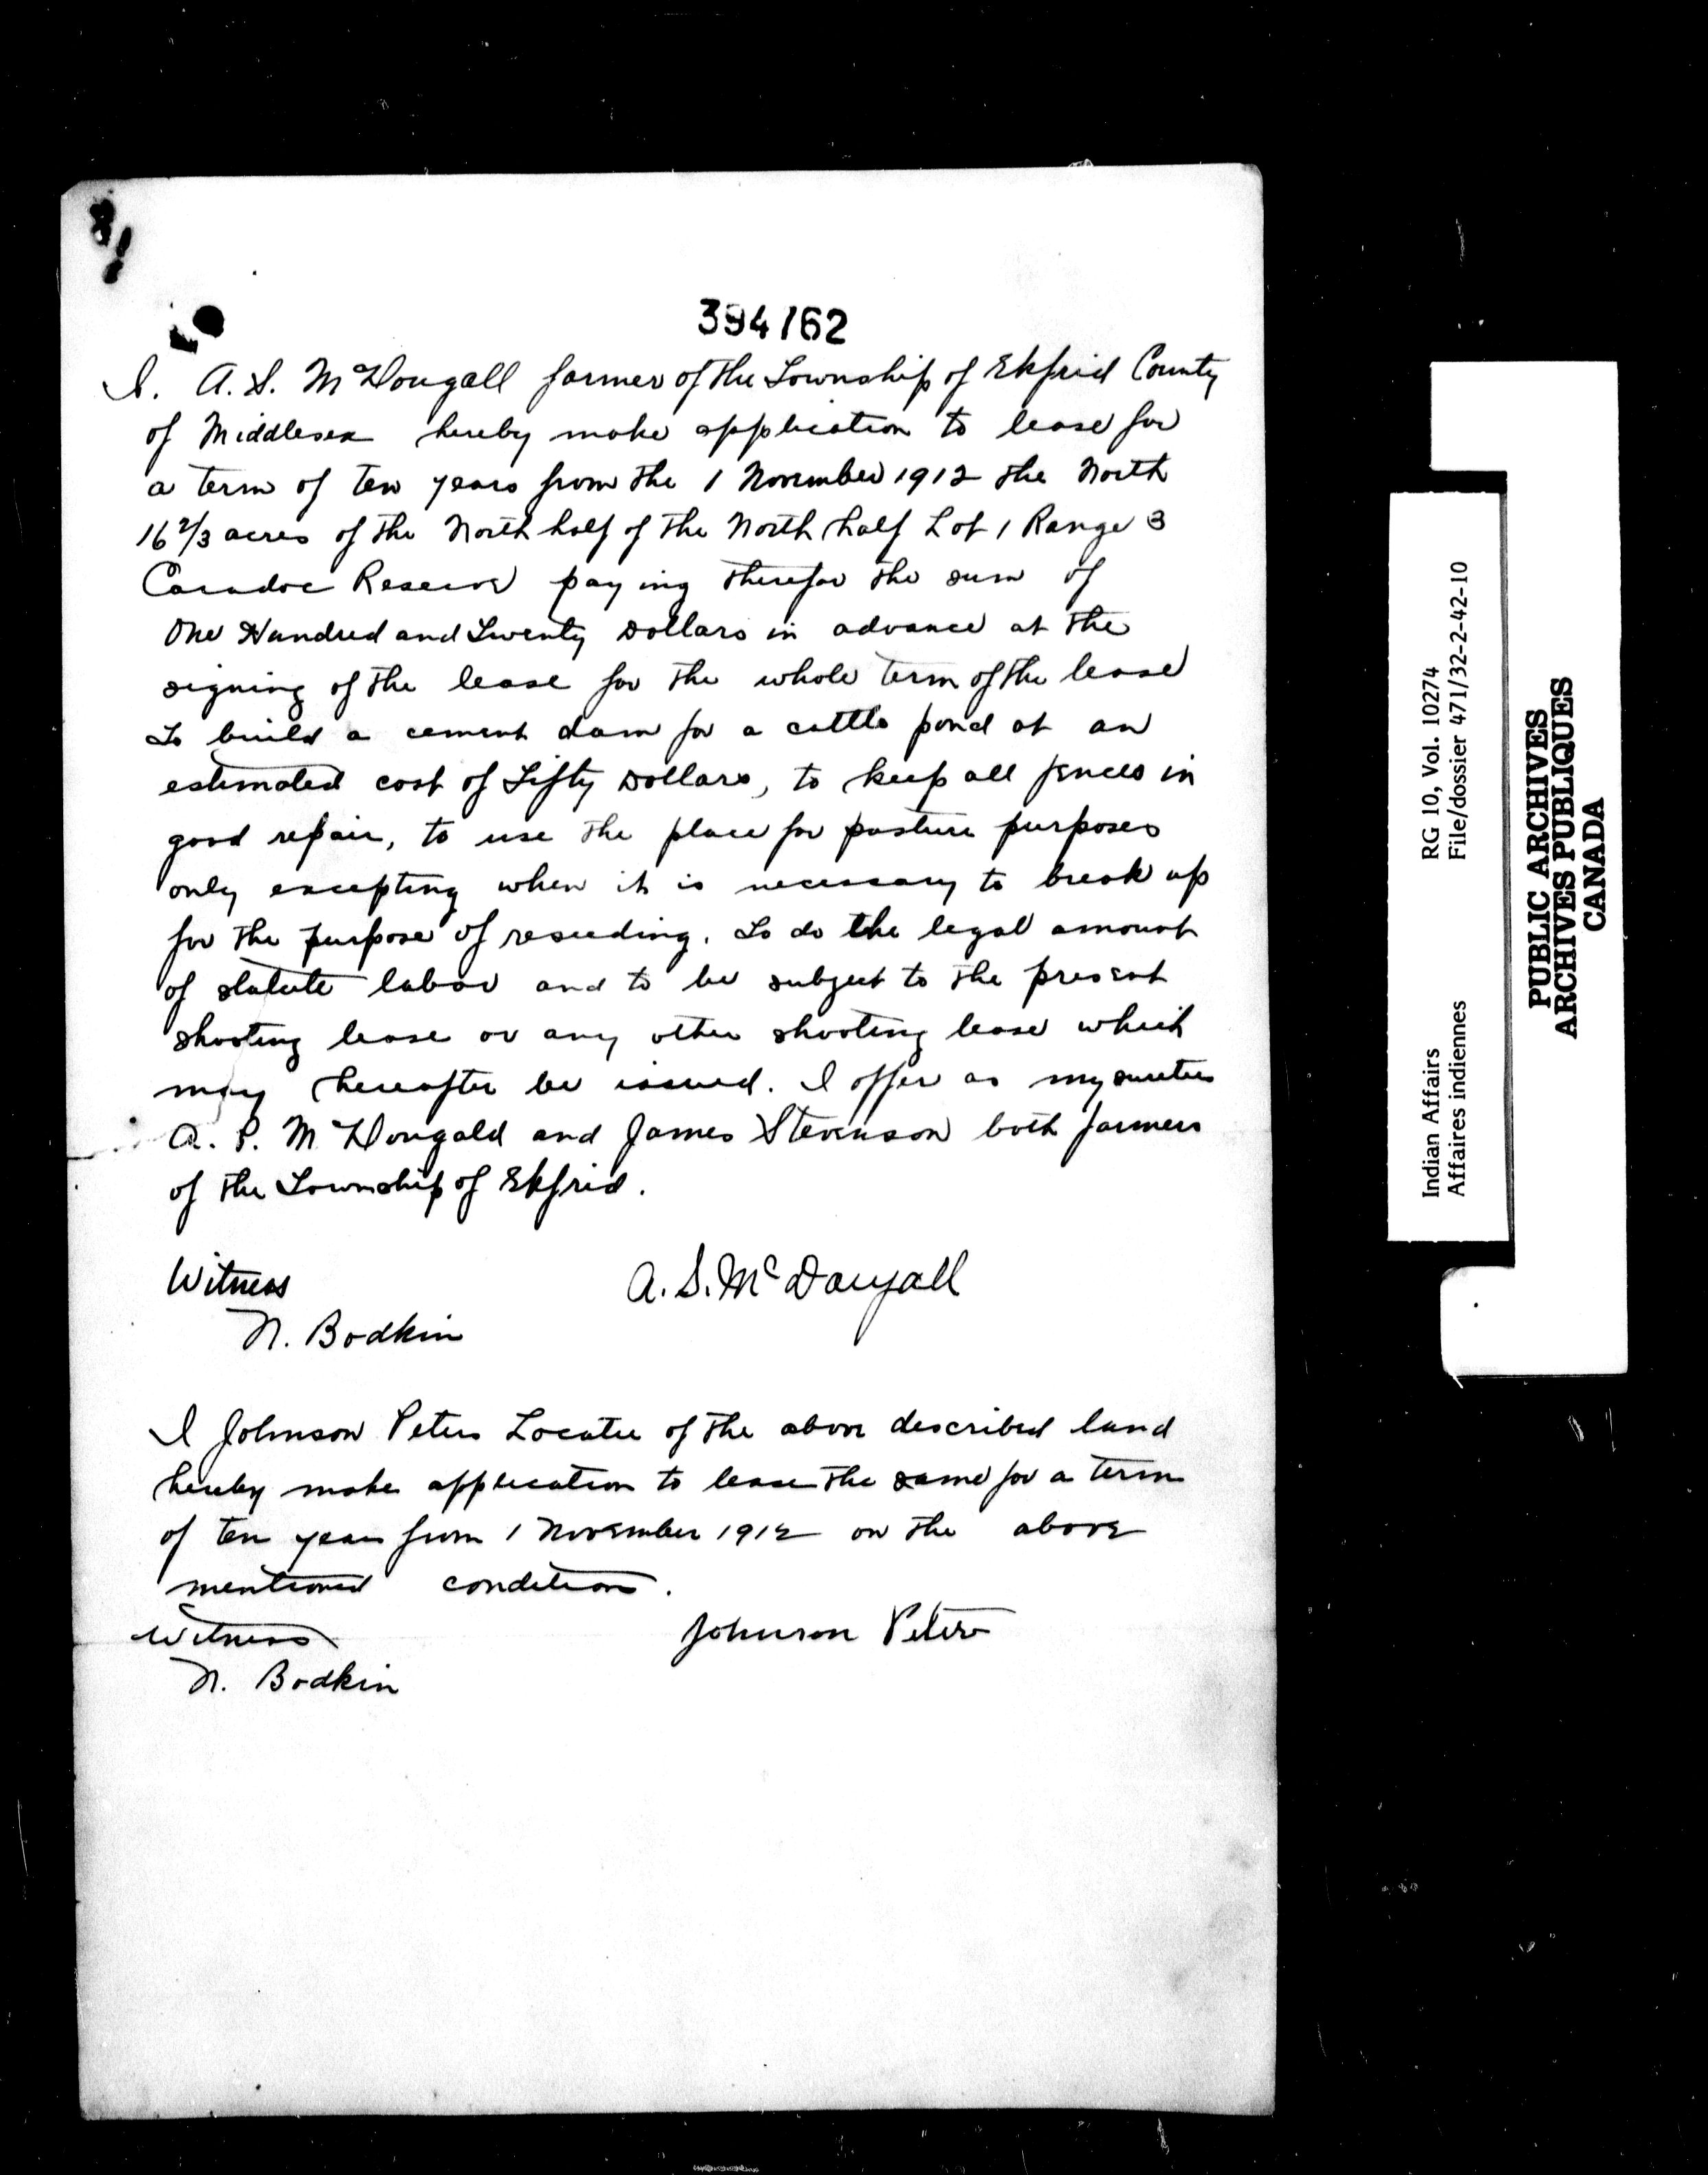 394162
I. A. S. McDougall farmer of the Township of Ekfrid County
of Middlesex hereby make application to lease for
a term of ten years from the 1 November 1912 the North
16 2/3 acres of the North half of the North half Lot 1 Range 3
Caradoc Reserve paying therefor the sum of
One Hundred and Twenty Dollars in advance at the
signing of the lease for the whole term of the lease
To build a cement dam for a cattle pond at an
estimated cost of Fifty Dollars, to keep all fences in
good repair, to use the place for pasture purposes
only excepting when it is necessary to break up
for the purpose of reseeding. To do the legal amount
of statute labor and to be subject to the present
shooting lease or any other shooting lease which
may hereafter be issued. I offer as my sureties
A. P. McDougald and James Stevenson both farmers
of the Township of Ekfrid.
Witness A. S. McDougall
N. Bodkin
I Johnson Peters Locatee of the above described land
hereby make application to lease the same for a term
of ten years from 1 November 1912 on the above
mentioned conditions.
Witness Johnson Peters
N. Bodkin
Indian Affairs RG 10, Vol. 10274
Affaires indiennes File/dossier 471/32-2-42-10
PUBLIC ARCHIVES
ARCHIVES PUBLIQUES
CANADA